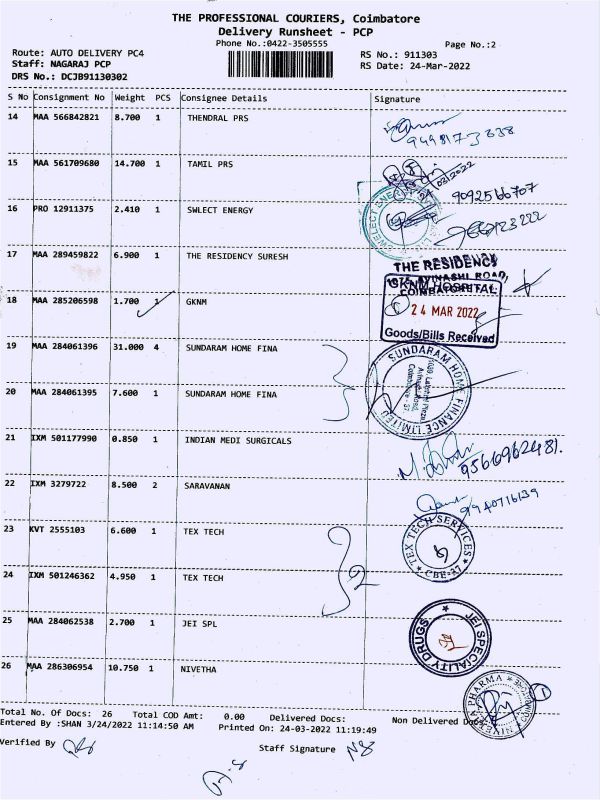 THE PROFESSIONAL COURIERS, Coimbatore
Delivery Runsheet - PCP
Phone No.:0422-3505555
Page No.:2
Route: AUTO DELIVERY PC4
RS No.: 911303
Staff: NAGARAJ PCP
RS Date: 24-Mar-2022
DRS No.: DCJB91130302
S No Consignment No Weight PCS Consignee Details Signature
14 MAA 566842821 8.700 1 THENDRAL PRS
15 MAA 561709680 14.700 1 TAMIL PRS
9092566707
16 PRO 12911375 2.410 1 SWLECT ENERGY
17 MAA 289459822 6.900 1 THE RESIDENCY SURESH
THE RESIDENCY
AVINASHI ROAD,
COIMBATORE
18 MAA 285206598 1.700 1 GKNM
GKNM HOSPITAL
24 MAR 2022
Goods/Bills Received
19 MAA 284061396 31.000 4 SUNDARAM HOME FINA
SUNDARAM HOME FINANCE LIMITED
20 MAA 284061395 7.600 1 SUNDARAM HOME FINA
21 IXM 501177990 0.850 1 INDIAN MEDI SURGICALS
9566962481.
22 IXM 3279722 8.500 2 SARAVANAN
9940716139
23 KVT 2555103 6.600 1 TEX TECH
TEX TECH SERVICES
CBE-37
24 IXM 501246362 4.950 1 TEX TECH
2
25 MAA 284062538 2.700 1 JEI SPL
JEI SPECIALITY DRUGS
26 MAA 286306954 10.750 1 NIVETHA
NIVETHA PHARMA
1
Total No. Of Docs: 26 Total COD Amt: 0.00 Delivered Docs: Non Delivered Docs:
Entered By :SHAN 3/24/2022 11:14:50 AM Printed On: 24-03-2022 11:19:49
Verified By
Staff Signature